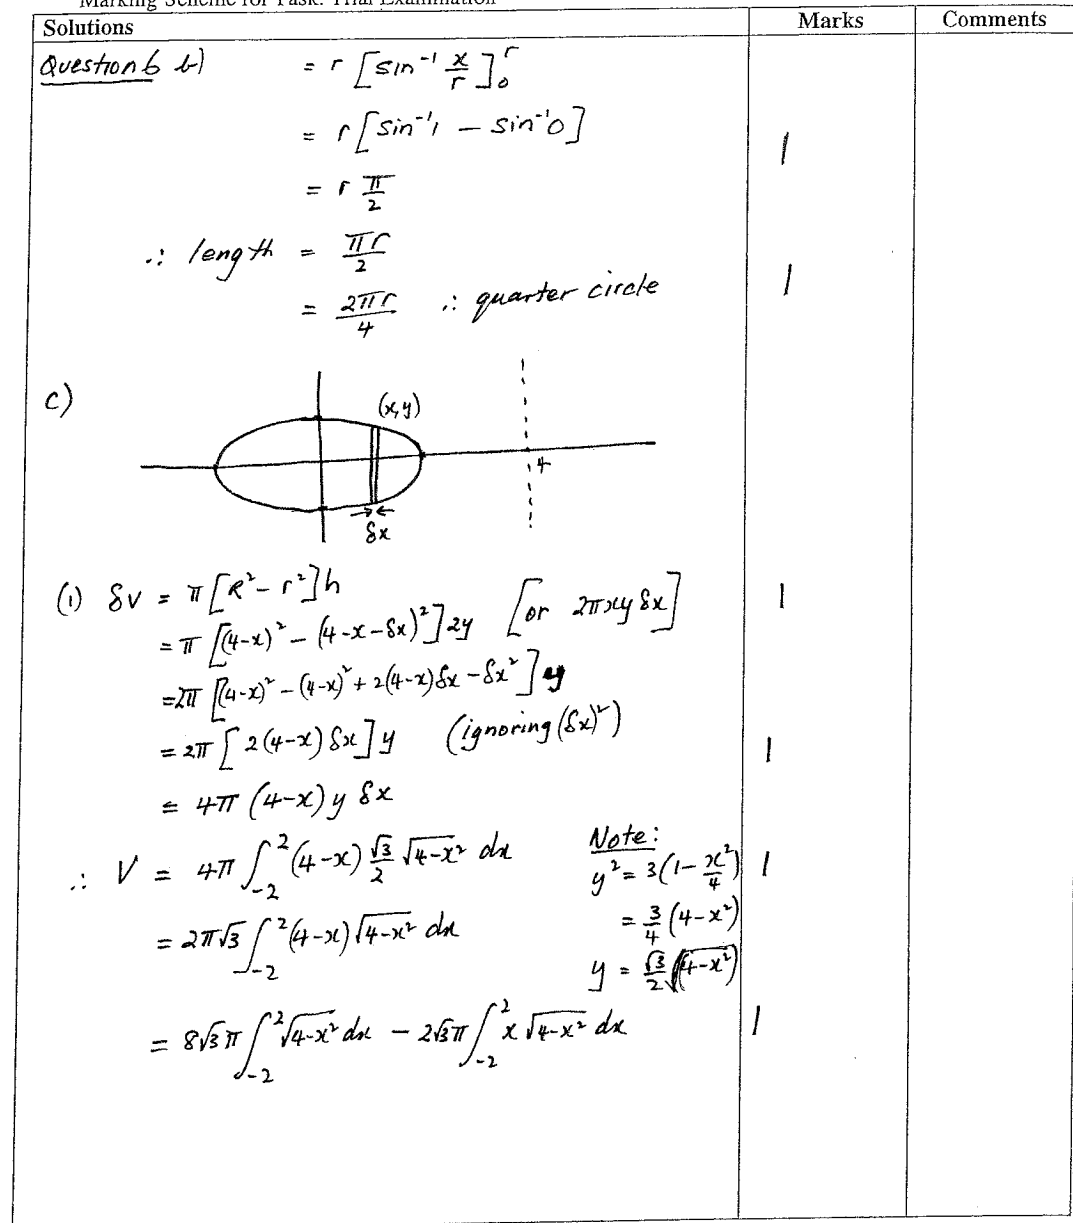 Marking Scheme for Task: Trial Examination
Solutions Marks Comments
Question 6 b) = r [sin⁻¹ x/r]₀ʳ
= r [sin⁻¹1 − sin⁻¹0] 1
= r π/2
∴ length = πr/2
= 2πr/4 ∴ quarter circle 1
c)
(x,y)
4
→ ←
δx
(i) δV = π [R² − r²] h 1
= π [(4−x)² − (4−x−δx)²] 2y [or 2πxy δx]
= 2π [(4−x)² − (4−x)² + 2(4−x)δx − δx²] y
= 2π [2(4−x) δx] y (ignoring (δx)²) 1
= 4π (4−x) y δx
∴ V = 4π ∫₋₂² (4−x) √3/2 √(4−x²) dx 1
= 2π√3 ∫₋₂² (4−x) √(4−x²) dx
Note:
y² = 3(1 − x²/4)
= 3/4 (4−x²)
y = √3/2 √(4−x²)
= 8√3 π ∫₋₂² √(4−x²) dx − 2√3 π ∫₋₂² x √(4−x²) dx 1